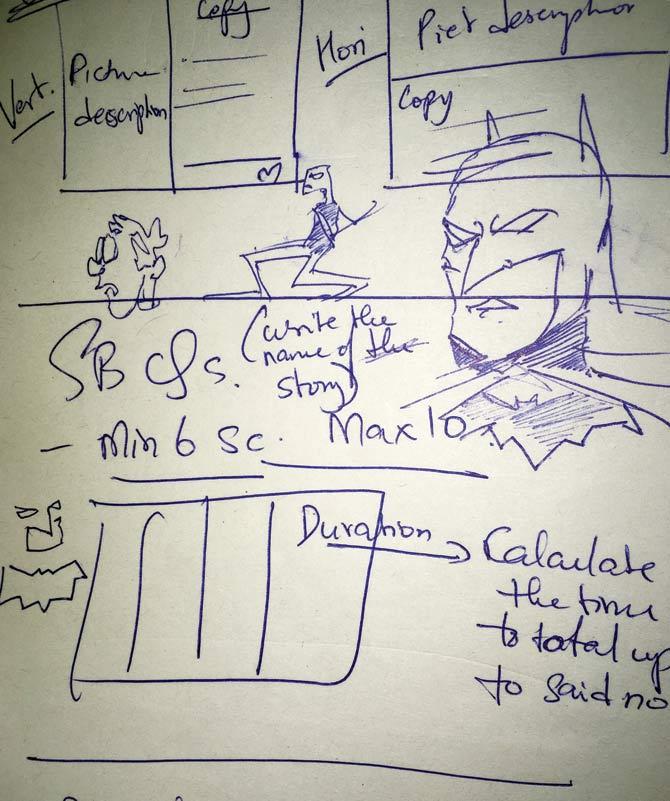 Copy
Vert.
Picture
description
Hori
Pict description
Copy
SB Cfs. (write the
name of the
story)
- Min 6 Sc. Max 10.
Duration → Calculate
the time
to total up
to said no